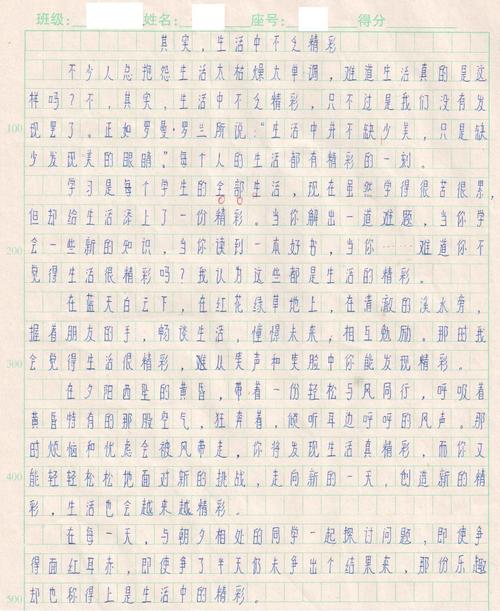 班级: 姓名: 座号: 得分
其实，生活中不乏精彩
不少人总抱怨生活太枯燥太单调，难道生活真的是这
样吗？不，其实，生活中不乏精彩，只不过是我们没有发
100 现罢了。正如罗曼·罗兰所说：“生活中并不缺少美，只是缺
少发现美的眼睛。”每个人的生活都有精彩的一刻。
学习是每个学生的全部生活，现在虽然学得很苦很累，
但却给生活添上了一份精彩。当你解出一道难题，当你学
200 会一些新的知识，当你读到一本好书，当你……难道你不
觉得生活很精彩吗？我认为这些都是生活的精彩。
在蓝天白云下，在红花绿草地上，在清澈的溪水旁，
握着朋友的手，畅谈生活，憧憬未来，相互勉励。那时我
300 会觉得生活很精彩，难从笑声和笑脸中你能发现精彩。
在夕阳西坠的黄昏，带着一份轻松与风同行，呼吸着
黄昏特有的那股空气，狂奔着，倾听耳边呼呼的风声。那
时烦恼和忧虑会被风带走，你将发现生活真精彩，而你又
400 能轻轻松松地面对新的挑战，走向新的一天，创造新的精
彩，生活也会越来越精彩。
在每一天，与朝夕相处的同学一起探讨问题，即使争
得面红耳赤，即使争了半天仍未争出个结果来，那份乐趣
500 却也称得上是生活中的精彩。